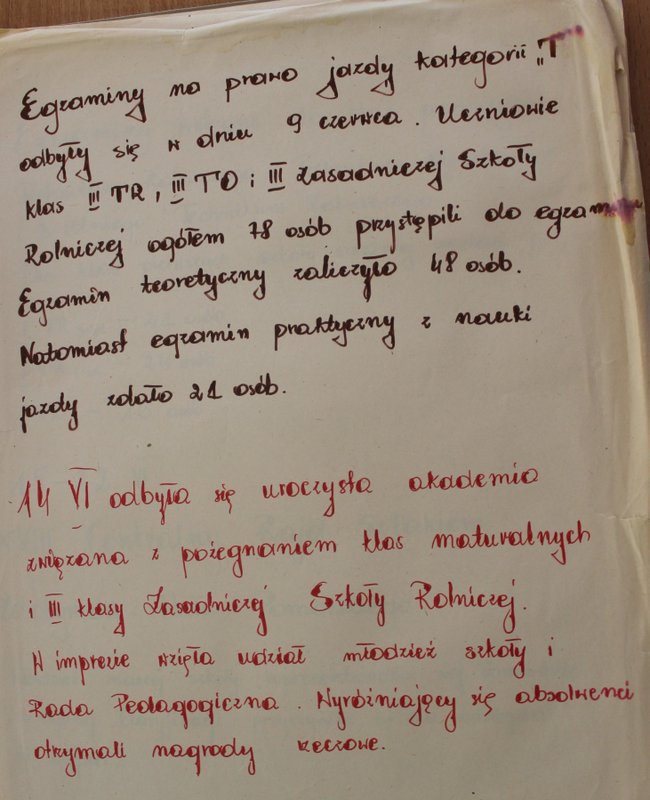 Egzaminy na prawo jazdy kategorii „T
odbyły się w dniu 9 czerwca. Uczniowie
klas III TR, III TO i III Zasadniczej Szkoły
Rolniczej ogółem 78 osób przystępili do egzaminu
Egzamin teoretyczny zaliczyło 48 osób.
Natomiast egzamin praktyczny z nauki
jazdy zdało 21 osób.
14 VI odbyła się uroczysta akademia
związana z pożegnaniem klas maturalnych
i III klasy Zasadniczej Szkoły Rolniczej.
W imprezie wzięła udział młodzież szkoły i
Rada Pedagogiczna. Wyróżniający się absolwenci
otrzymali nagrody rzeczowe.